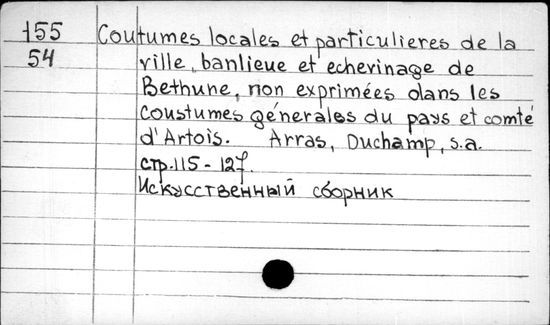 155 Coutumes locales et particulieres de la
54 ville, banlieue et echevinage de
Bethune, non exprimées dans les
Coustumes génerales du pays et comté
d'Artois. Arras, Duchamp, s.a.
стр.115-127.
Искусственный сборник